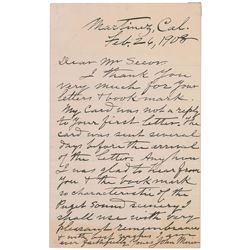 Martinez, Cal.
Feb. 26, 1908
Dear Mr
I thank you
very much for your
letters & bookmark.
My card was not a reply
to your first letter. The
card was sent several
days before the arrival
of the letter. Anyhow
I was glad to hear from
you & the bookmark
so characteristic of the
Puget Sound scenery I
shall use with very
pleasant remembrance
& with best wishes I am
ever faithfully yours John Muir